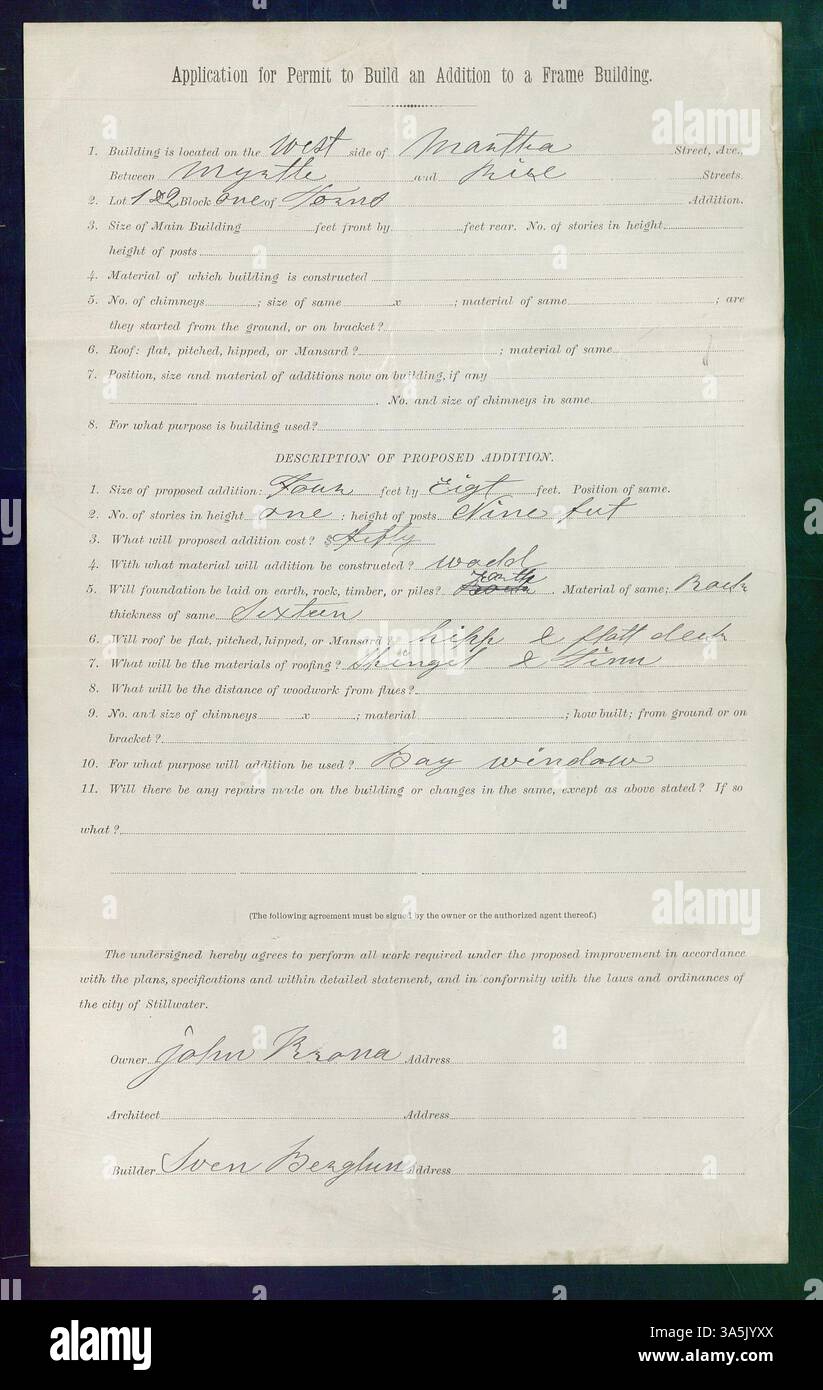 Application for Permit to Build an Addition to a Frame Building.
1. Building is located on the West side of Martha Street, Ave.,
Between Myrtle and Rise Streets.
2. Lot 1 & 2 Block one of Addition.
3. Size of Main Building feet front by feet rear. No. of stories in height
height of posts
4. Material of which building is constructed
5. No. of chimneys ; size of same x ; material of same ; are
they started from the ground, or on bracket?
6. Roof: flat, pitched, hipped, or Mansard? ; material of same
7. Position, size and material of additions now on building, if any
. No. and size of chimneys in same
8. For what purpose is building used?
DESCRIPTION OF PROPOSED ADDITION.
1. Size of proposed addition: Four feet by Eigt feet. Position of same.
2. No. of stories in height one ; height of posts Nine fut
3. What will proposed addition cost? $ fifty
4. With what material will addition be constructed? wodd
5. Will foundation be laid on earth, rock, timber, or piles? Earth . Material of same; Rock
thickness of same Sixteen
6. Will roof be flat, pitched, hipped, or Mansard? hipp & flatt deck
7. What will be the materials of roofing? Shingel & Tinn
8. What will be the distance of woodwork from flues?
9. No. and size of chimneys x ; material ; how built; from ground or on
bracket?
10. For what purpose will addition be used? Bay window
11. Will there be any repairs made on the building or changes in the same, except as above stated? If so
what?
(The following agreement must be signed by the owner or the authorized agent thereof.)
The undersigned hereby agrees to perform all work required under the proposed improvement in accordance
with the plans, specifications and within detailed statement, and in conformity with the laws and ordinances of
the city of Stillwater.
Owner John Krona Address
Architect Address
Builder Sven Berglun Address
alamy
Image ID: 3A5JYXX
www.alamy.com